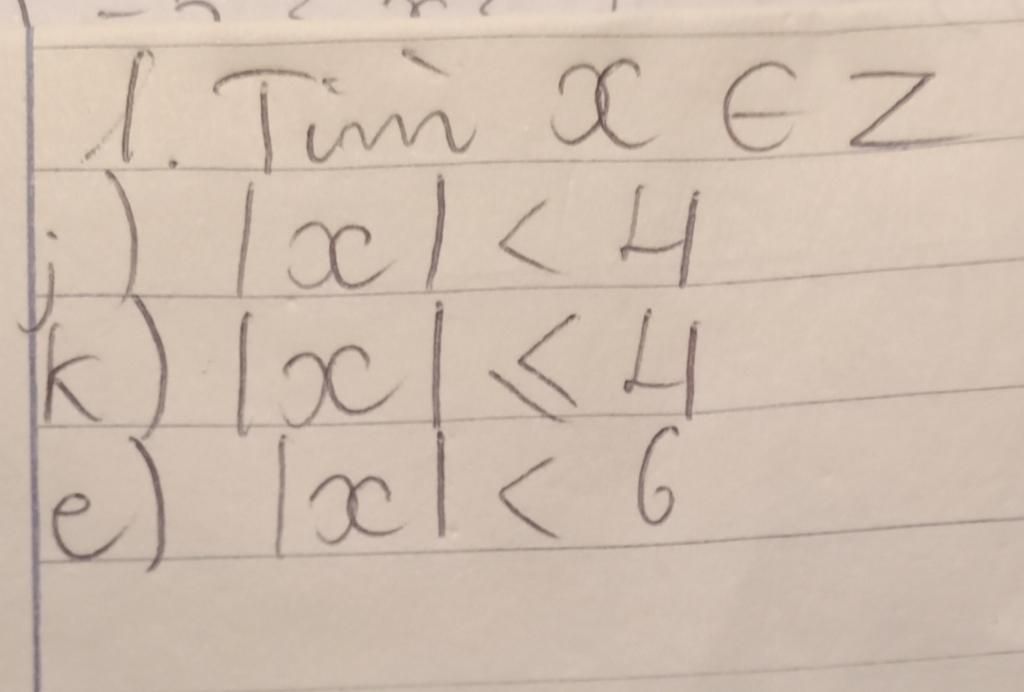 1. Tìm x ∈ Z
j) |x| < 4
k) |x| ⩽ 4
e) |x| < 6